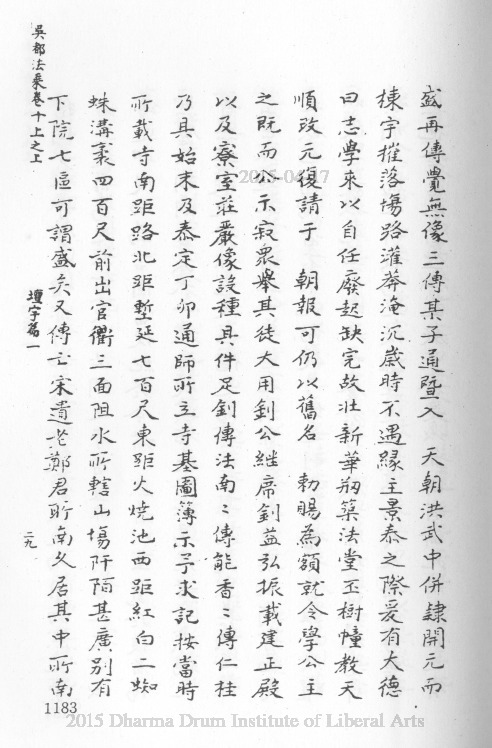 盛再傳覺無像三傳某子通暨入　天朝洪武中併隸開元而
棟宇摧落場路灌莽淹沉歲時不遇緣主景泰之際爰有大德
曰志學來以自任廢起缺完故壯新華剏築法堂丕樹幢教天
順改元復請于　朝報可仍以舊名　勅賜為額就令學公主
之既而公示寂眾舉其徒大用釗公繼席釗益弘振載建正殿
以及寮室莊嚴像設種具件足釗傳法南〻傳能香〻傳仁桂
乃具始末及泰定丁卯通師所立寺基圖簿示予求記按當時
所載寺南距路北距塹延七百尺東距火燒池西距紅白二蜘
蛛溝袤四百尺前出官衢三面阻水所轄山場阡陌甚廣別有
下院七區可謂盛矣又傳云宋遺老鄭君所南久居其中所南
吳都法乘卷十上之上
壇宇篇一
二九
1183
2015 Dharma Drum Institute of Liberal Arts